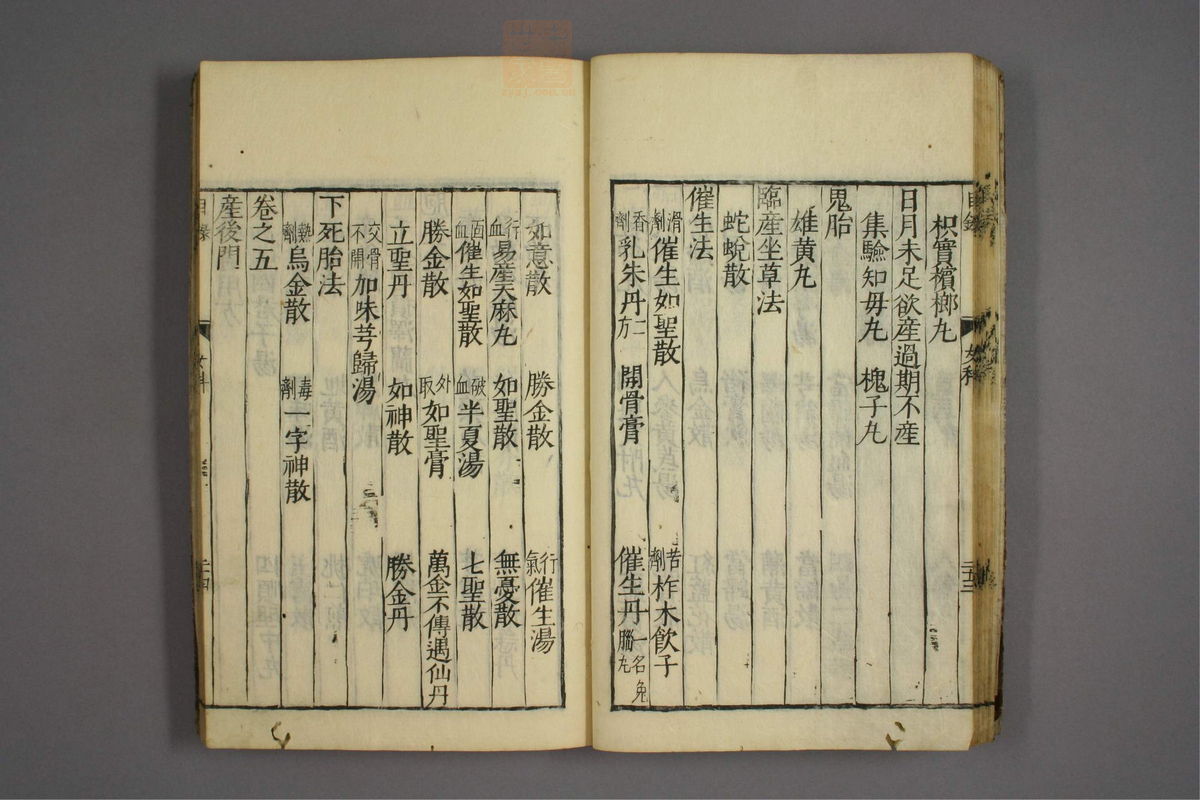 枳實檳榔丸
日月未足欲産過期不産
集驗知母丸 槐子丸
鬼胎
雄黄丸
臨産坐草法
蛇蛻散
催生法
滑劑催生如聖散 苦劑柞木飲子
香劑乳朱丹二方 開骨膏 催生丹一名兔腦丸
目錄 女科 二十三
如意散 勝金散 行氣催生湯
行血易産天麻丸 如聖散 無憂散
血催生如聖散 破血半夏湯 七聖散
勝金散 外取如聖膏 萬金不傳遇仙丹
立聖丹 如神散 勝金丹
交骨不開加味芎歸湯
下死胎法
熱劑烏金散 毒劑一字神散
卷之五
産後門
目錄 女科 二十四